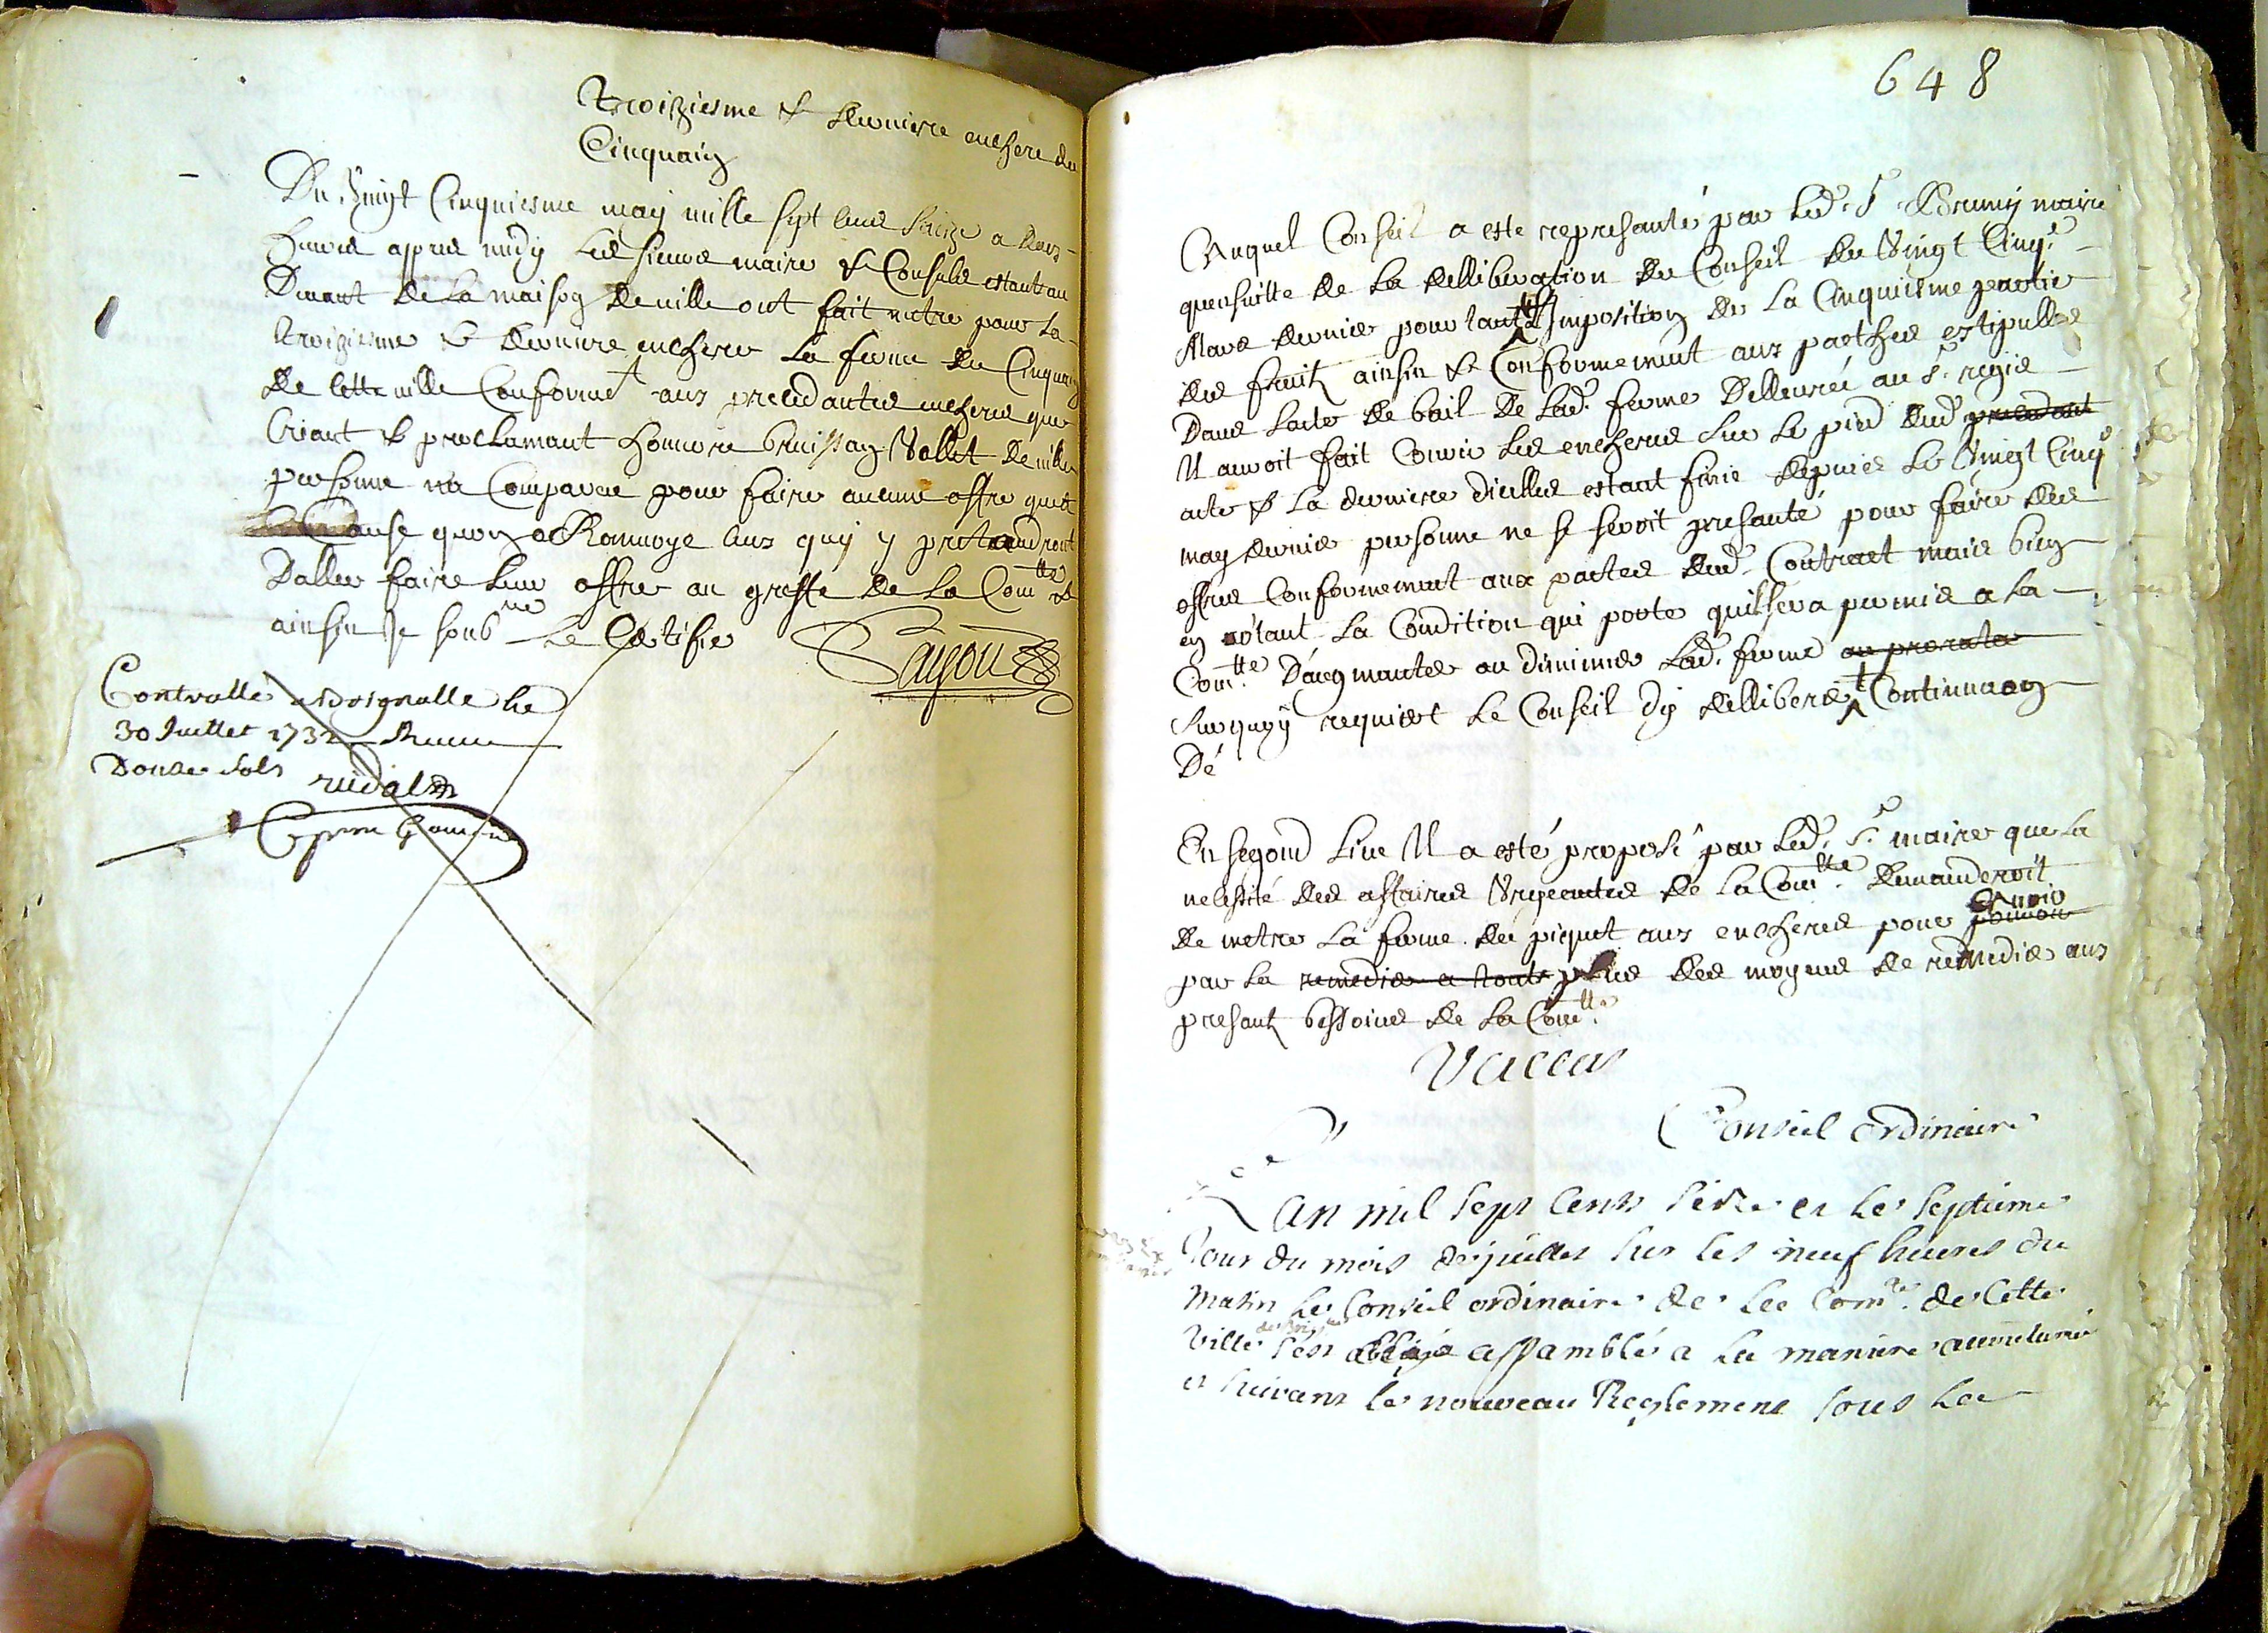 Troiziesme & derniere enchere du
Cinquain
Du Vingt Cinquiesme may mille sept cens saize a deux
heures appres midy les sieurs maire & Consuls estant au
devant de la maison de ville ont fait metre pour la
troizieme & derniere enchere la ferme du Cinquain
de cette ville Conformet aux precedantes encheres que
Criant & proclamant honnore bruissan Vallet de ville
personne na Comparue pour faire aucune offre qu'est
Cause quon a Ranvoye ceux quy y pretandront
Daller faire leur offre au greffe de la Comtte &
ainsin Je soubne le Certifie
Payon
Controllé a Brignolle le
30 Juillet 1732
Douze sols
648
Auquel Conseil a este represanté par led. Sr maire
quensuitte de la delliberation du Conseil du Vingt Cinqe
Mars dernier pour Imposition de la Cinquiesme partie
des fruitz ainsin & Conformement aux pacthes estipulles
Dans lacte de bail de lad. ferme Dellivrée au Sr regis
Il auroit fait Courir les encheres sur le pied dud precedant
acte & la derniere dicelles estant finie depuis le Vingt Cinqe
may dernier personne ne se seroit presanté pour faire des
offres Conformement aux pactes dud. Contract mais bien
en otant la Condition qui porte quil sera permis a la
Comtte D'augmanter ou diminuer lad. ferme au prorata
surquoy requiert le Conseil dy delliberer Continuan
Dé
En segond lieu Il a esté proposé par led. Sr maire que la
necessité des affaires Urgeantes de la Comtte Demanderoit
de metre la ferme du piquet aux encheres pour pouvoir avoir
par la remedier a toute plus des moyens de remedier aux
presantz bessoins de la Comtte
Vaccas
Conseil ordinaire
L'an mil sept cents seize et le septieme
Jour du mois de juillet sur les neuf heures du
matin le Conseil ordinaire de la Comte de cette
Ville s'est assamblé a la maniere accoutumée
et suivant le nouveau Reglement sous la